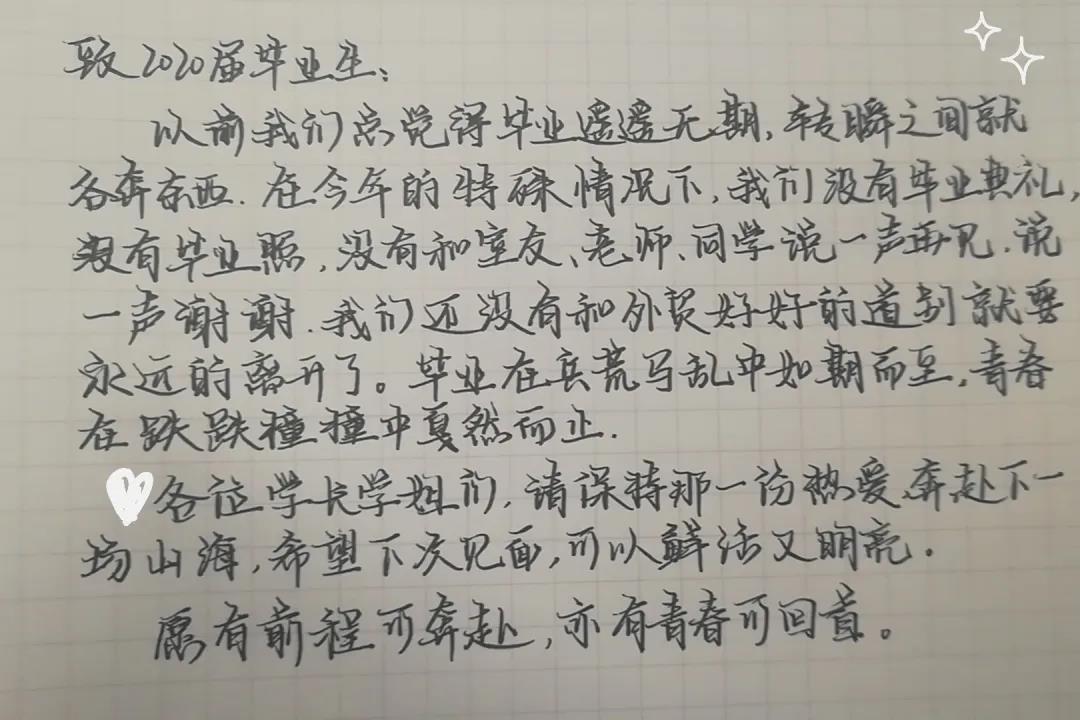 致2020届毕业生:
以前我们总觉得毕业遥遥无期,转瞬之间就
各奔东西.在今年的特殊情况下,我们没有毕业典礼,
没有毕业照,没有和室友、老师、同学说一声再见.说
一声谢谢.我们还没有和外贸好好的道别就要
永远的离开了。毕业在兵荒马乱中如期而至,青春
在跌跌撞撞中戛然而止.
各位学长学姐们,请保持那一份热爱,奔赴下一
场山海,希望下次见面,可以鲜活又明亮。
愿有前程可奔赴,亦有青春可回首。